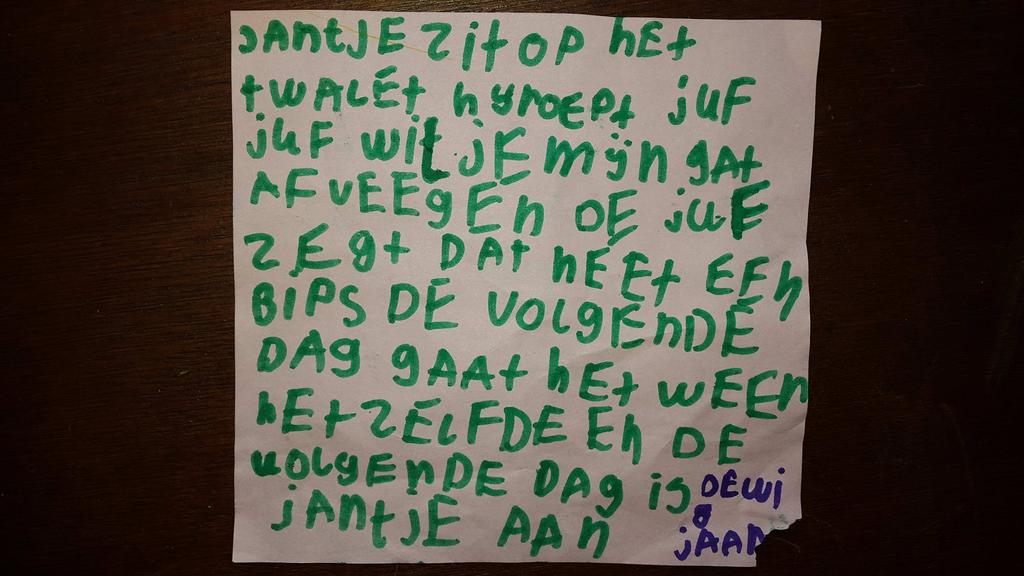 jAntjE zit op hEt
twALEt hy roEpt juF
juF wil jE mijn gAt
AF vEEgEn DE juF
zEgt DAt hEEt EEn
BIPS DE volgEnDE
DAg gAAt hEt wEEn
hEt zELFDE En DE
volgEnDE DAg is
jAntjE AAn
DEwi
g
jAAn